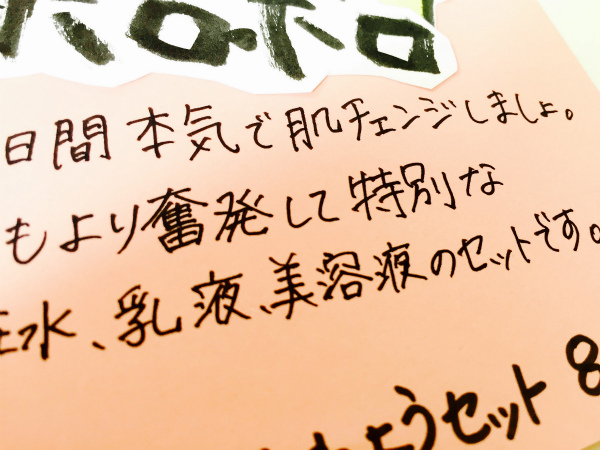 日間 本気で肌チェンジしましょ。
もより奮発して特別な
水、乳液、美容液のセットです。
ょうセット 8